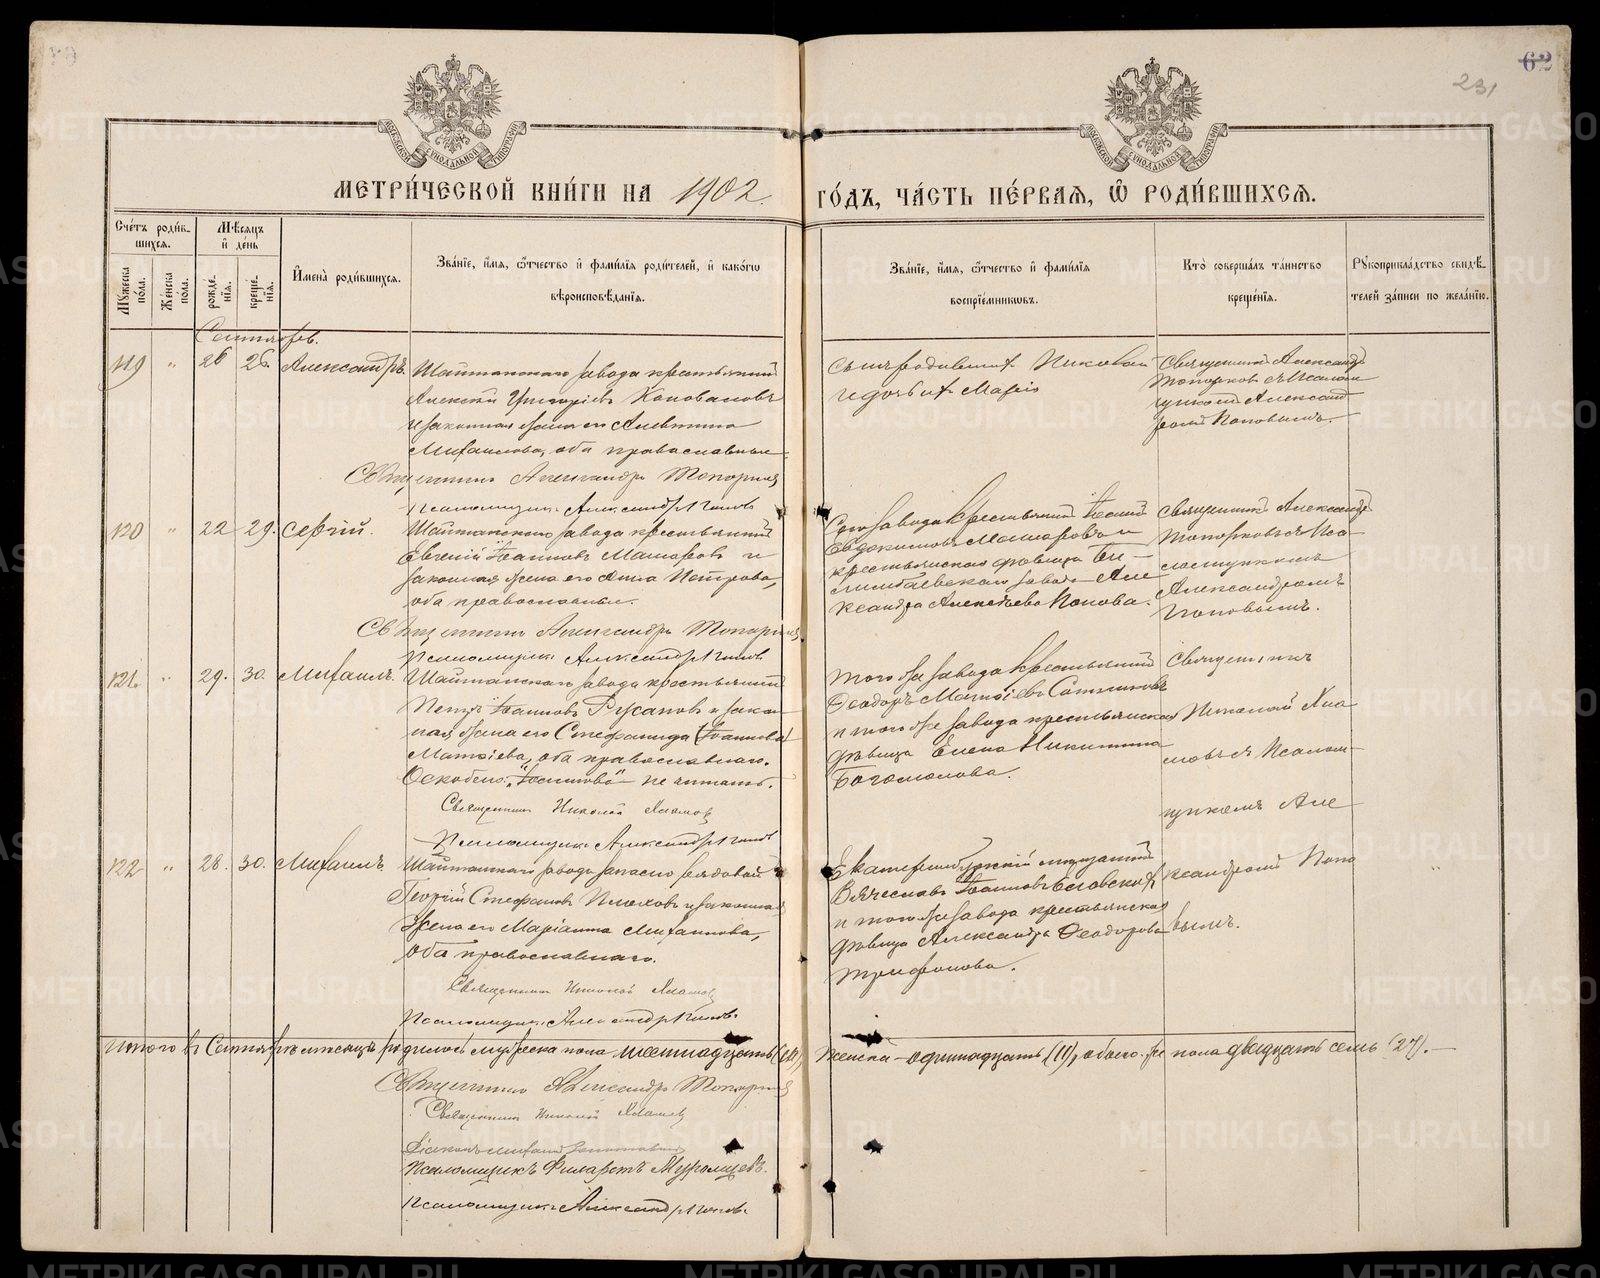 62
231
МЕТРИ́ЧЕСКОЙ КНИ́ГИ НА 1902 ГО́ДЪ, ЧА́СТЬ ПЕ́РВАЯ, Ѡ҃ РОДИ́ВШИХСЯ.
Счетъ роди́в-
шихся.
Му́жеска по́ла.
Же́нска по́ла.
Мѣ́сяцъ
и҆ де́нь
рожде́-
нїя.
креще́-
нїя.
И҆мена̀ роди́вшихся.
Зва́нїе, и҆́мя, ѻ҆́тчество и҆ фами́лїя роди́телей, и҆ како́гѡ
вѣроисповѣ́данїя.
Зва́нїе, и҆́мя, ѻ҆́тчество и҆ фами́лїя
воспрїе́мникѡвъ.
Кто̀ соверша́лъ та́инство
креще́нїя.
Рꙋкоприкла́дство свидѣ́-
телей за́писи по жела́нїю.
Сентябрь.
119 " 26 26. Александръ.
Шайтанскаго завода крестьянинъ
Алексѣй Григоріевъ Коноваловъ
и законная жена его Алевтина
Михаилова, оба православные.
Священникъ Александръ Топорковъ
Псаломщикъ Александръ Поповъ
Николай
и дочь Марія
Священникъ Александръ
Топорковъ съ Псалом
щикомъ Александ
ромъ Поповымъ.
120 " 22 29. Сергій.
Шайтанскаго завода крестьянинъ
Евгеній Іоанновъ Машаровъ и
законная жена его Анна Петрова,
оба православные.
Священникъ Александръ Топорковъ
Псаломщикъ Александръ Поповъ
Сего завода крестьянинъ
Евдокимовъ Машаровъ и
крестьянская дѣвица Би-
лимбаевскаго завода Але
ксандра Алексѣева Попова.
Священникъ Александръ
Топорковъ съ Пса-
ломщикомъ
Александромъ
Поповымъ.
121. " 29. 30. Михаилъ.
Шайтанскаго завода крестьянинъ
Петръ Іоанновъ Русановъ и закон
ная жена его Стефанида (Іоаннова)
Матѳіева, оба православнаго.
Оскоблено: "Іоаннова" не читать.
Священникъ Николай Хламовъ
Псаломщикъ Александръ Поповъ
того же завода крестьянинъ
Ѳеодоръ Матѳіевъ Сотниковъ
и того же завода крестьянская
дѣвица Елена Никитина
Богомолова.
Священникъ
Николай Хла
мовъ съ Псалом-
щикомъ Але
ксандромъ Попо
вымъ.
122 " 28. 30. Михаилъ.
Шайтанскаго завода запасной рядовой
Георгій Стефановъ Плюховъ и законная
жена его Маріанна Михаилова,
оба православнаго.
Священникъ Николай Хламовъ
Псаломщикъ Александръ Поповъ
Екатеринбургскій мѣщанинъ
Вячеславъ Іоанновъ
и того же завода крестьянская
дѣвица Александра Ѳеодорова
Трифонова.
Итого въ Сентябрѣ мѣсяцѣ родилось мужеска пола шестнадцать (16), женска одиннадцать (11), обоего же пола двадцать семь (27).
Священникъ Александръ Топорковъ
Священникъ Николай Хламовъ
Псаломщикъ Филаретъ Муромцевъ.
Псаломщикъ Александръ Поповъ
METRIKI.GASO-URAL.RU